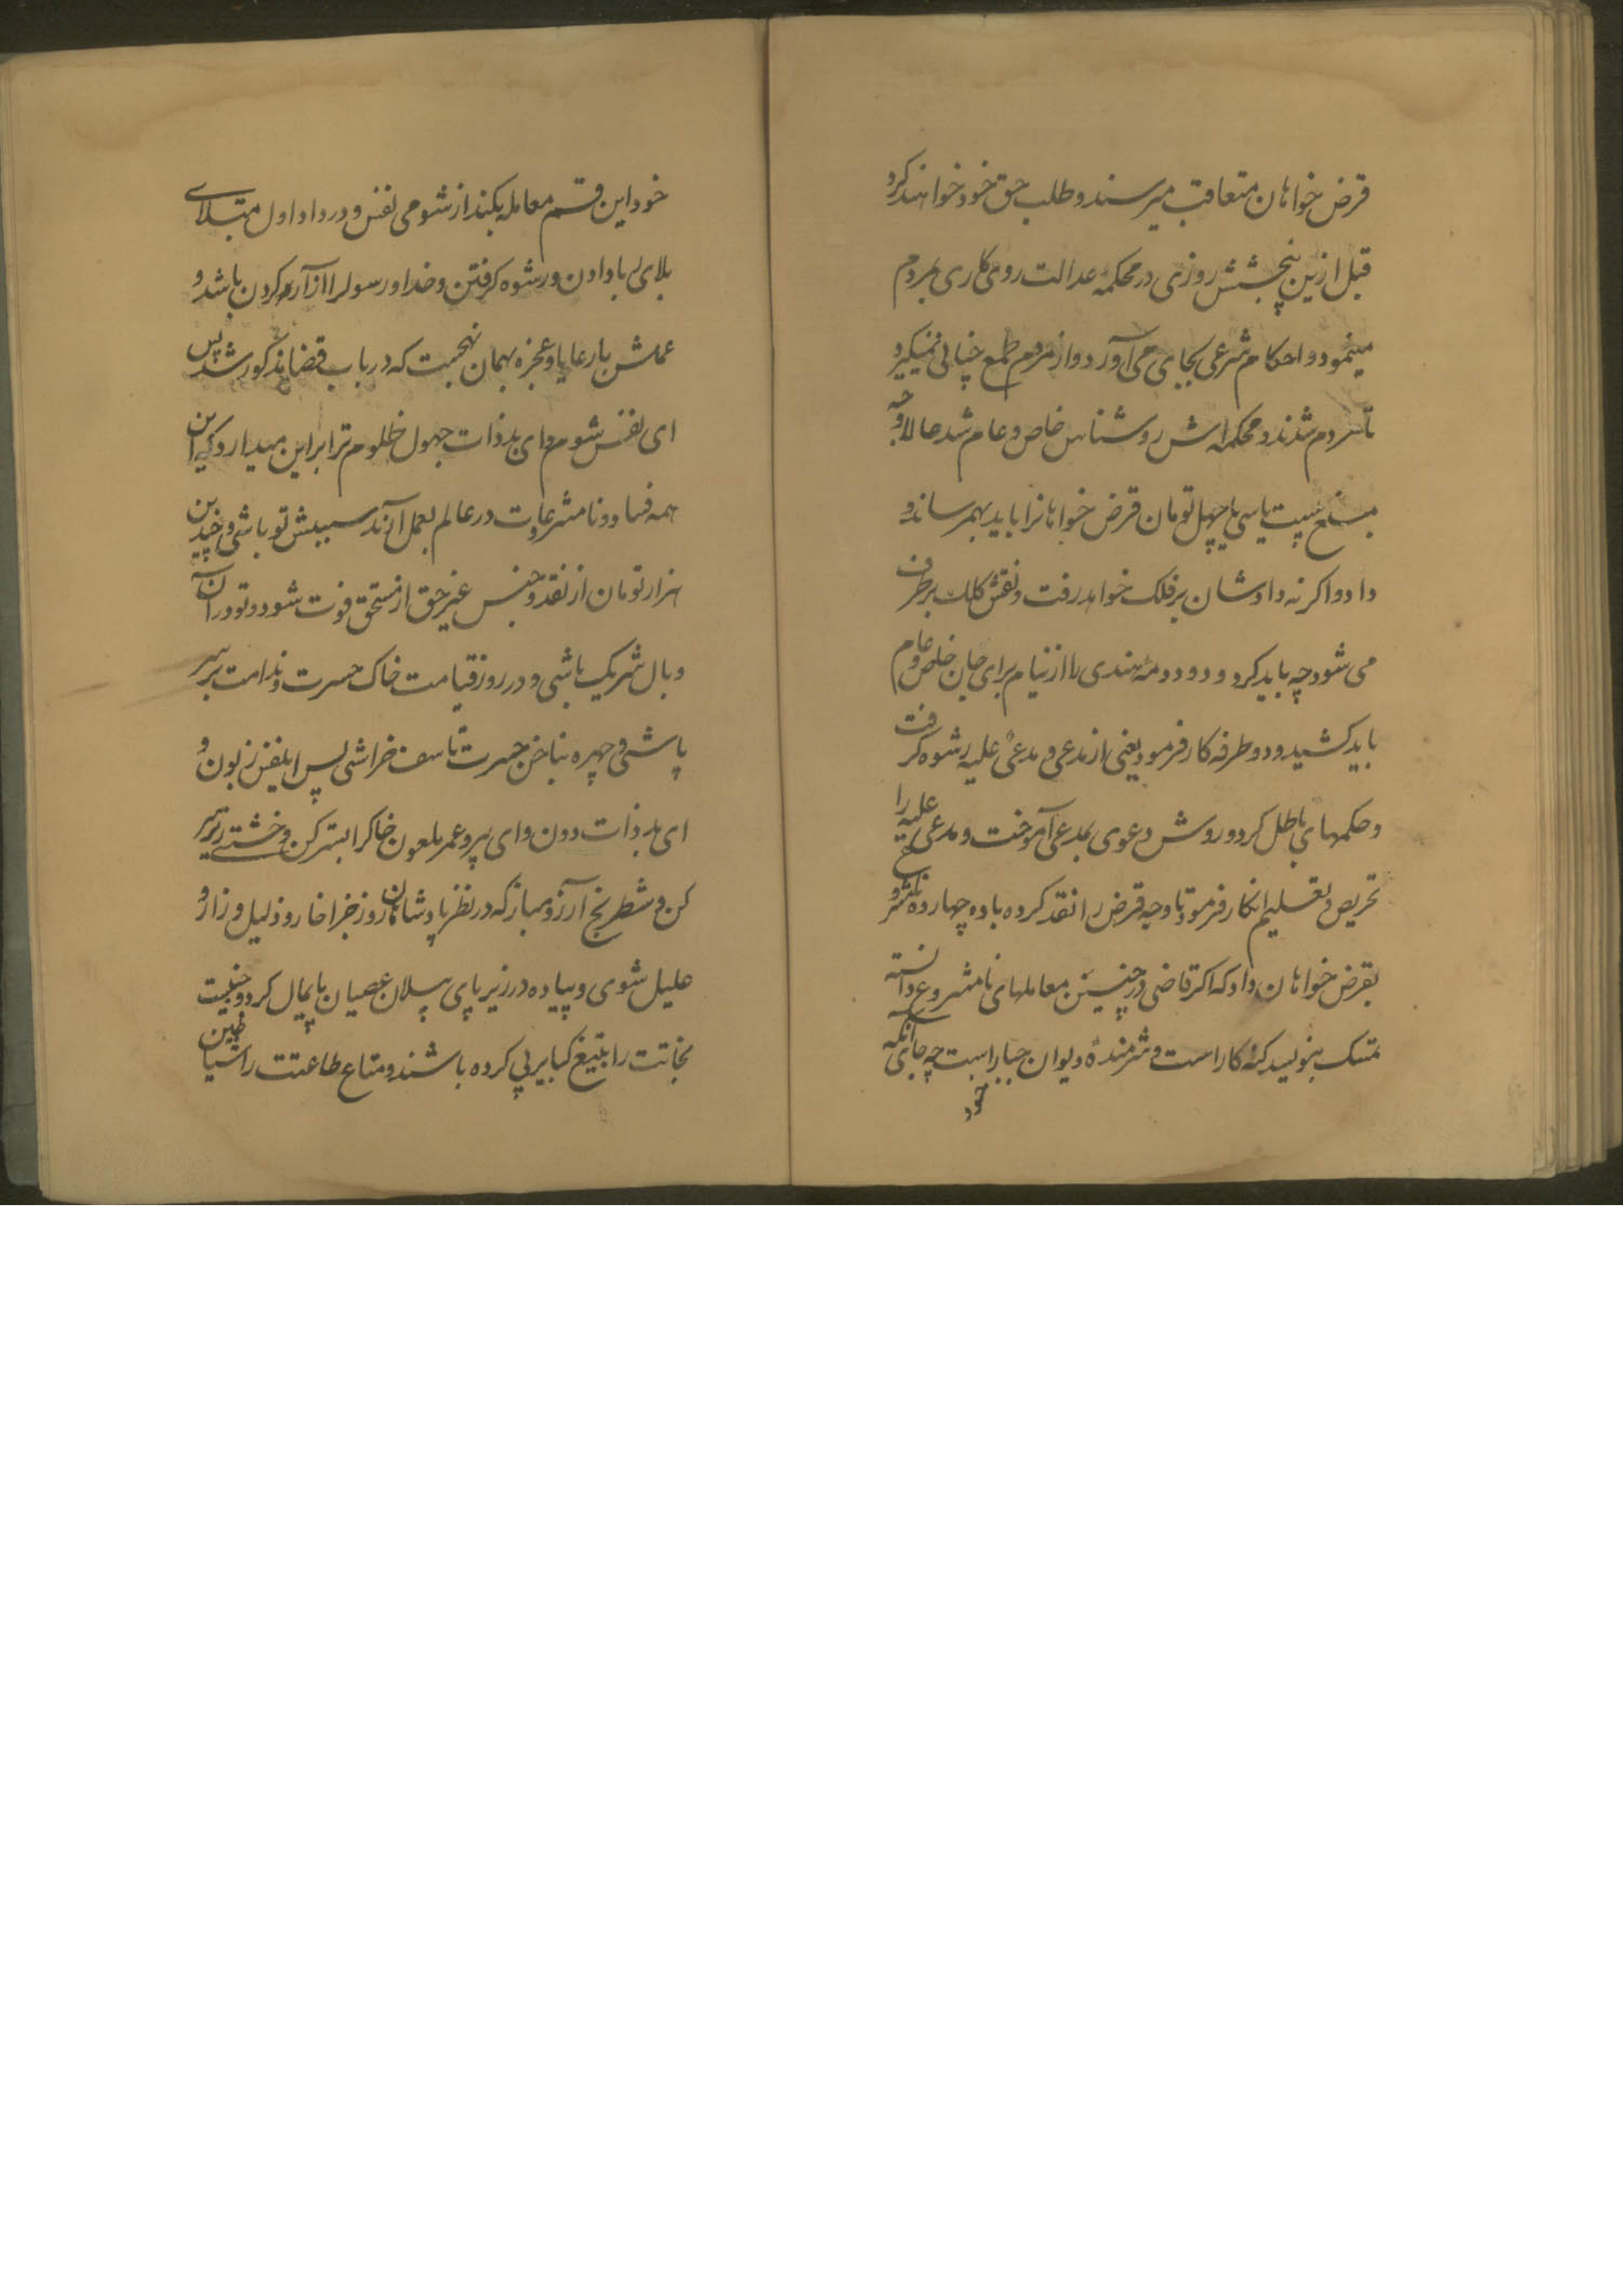 قرض خواهان متعاقب میرسند و طلب حق خود خواهند کرد
قبل ازین پنجشش روزی در محکمه عدالت روی کاری بمردم
مینمود و احکام شرعی بجای می آورد و از مردم طمع چنانی نمیکرد
تا مردم شدند و محکمه اش روشناس خاص و عام شد حالا وجه
مبلغ بیست یا سی یا چهل تومان قرض خواهانرا باید بهمرساند و
داد و اکر نه دادشان بر فلک خواهد رفت و نقش کلک برطرف
می شود چه باید کرد و دو دمهٔ هندی را از نیام برای جان خاص و عام
باید کشید و دو طرفه کار فرمود یعنی از مدعی و مدعی علیه رشوه کرفت
و حکمهای باطل کرد و روش دعوی بمدعی آموخت و مدعی علیه را
تحریص و تعلیم انکار فرمود تا وجه قرض را نقد کرده با ده چهارده
بقرض خواهان داد که اکر قاضی در چنین معاملهای نامشروع دانسته
تمسک بنویسد کنه کار است و شرمندهٔ دیوان جبار است چه جای آنکه
خود
خود این قسم معامله بکند از شومی نفس و در داد اول مبتلای
بلای ربا دادن و رشوه کرفتن و خدا و رسول را از آرده کردن باشد و
عملش با رعایا و عجزه بهمان نهجست که در باب قضا مذکور شد پس
ای نفس شوم وای بد ذات جهول ظلوم ترا برین میدارد که این
همه فساد و نامشروعات در عالم بعمل آرند سببش تو باشی و چندین
هزار تومان از نقد و جنس غیر حق از مستحق فوت شود و تو در آن
وبال شریک باشی و در روز قیامت خاک حسرت و ندامت بر سر
پاشی و چهره بناخن حسرت تاسف خراشی پس ای نفس زبون و
ای بد ذات دون وای پیرو عمر ملعون خاکرا بستر کن و خشتی زیر سر
کن و شطرنج آرزو مباز که در نظر پادشاهان روز جزا خار و ذلیل و زار و
علیل شوی و پیاده در زیر پای پیلان عصیان پایمال کرد و جنیبت
نجاتت را بتیغ کبایر پی کرده باشند و متاع طاعتت را شیاطین